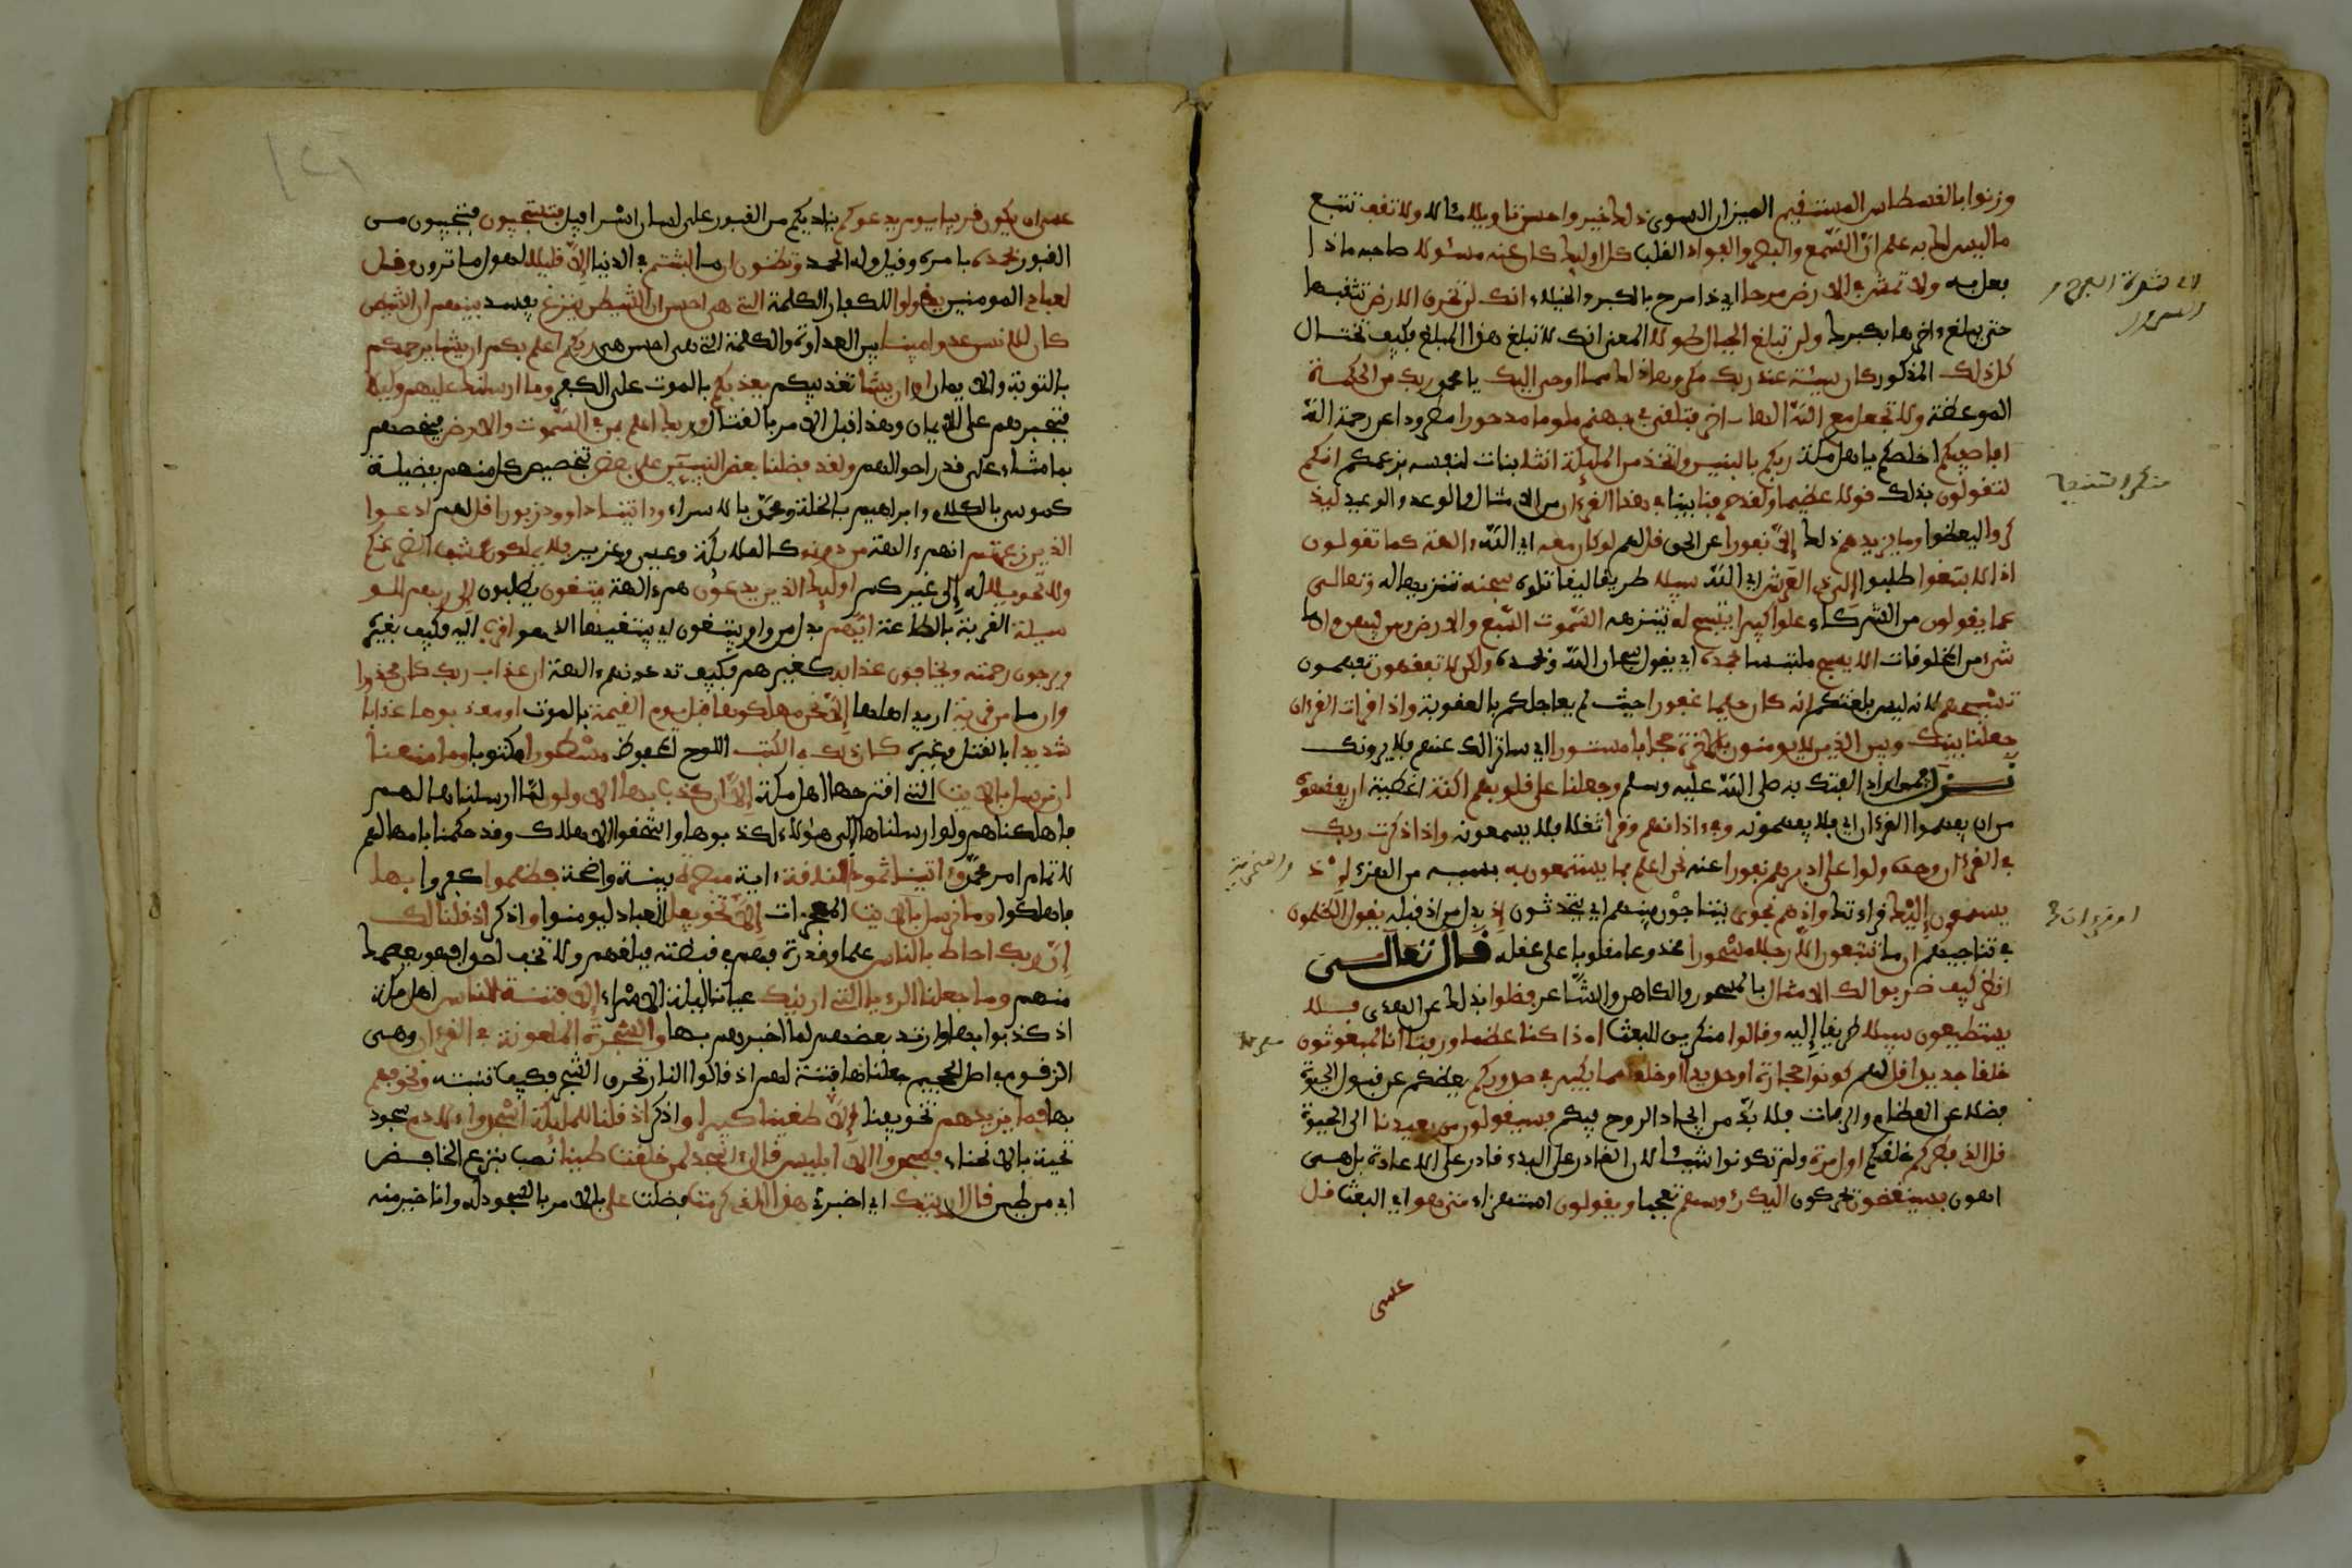 وزنوا بالقسطاس المستقيم الميزان السوى ذلك خير واحسن تاويلا مئالا ولا تقف تتبع
ما ليس لك به علم انّ السّمع والبصر والفواد القلب كل اوليك كان عنه مسئولا صاحبه ماذا
فعل به ولا تمش في الارض مرحا اي ذا مرح بالكبر والخيلاء انك لن تخرق الارض تثقبها
حتى تبلغ ءاخرها بكبرك ولن تبلغ الجبال طولا المعنى انك لا تبلغ هذا المبلغ فكيف تختال
كل ذلك المذكور كان سيئة عند ربك مكروها ذلك مما اوحى اليك يا محمد ربك من الحكمة
الموعظة ولا تجعل مع اللّه الها ءاخر فتلقى في جهنم ملوما مدحورا مطرودا عن رحمة اللّه
افاصفيكم اخلصكم يا اهل مكة ربكم بالبنين واتخذ من المليكة اناثا بنات لنفسه بزعمكم انكم
لتقولون بذلك قولا عظيما ولقد صرفنا بينا في هذا القرءان من الامثال والوعد والوعيد ليذ
كروا ليتعظوا وما يزيدهم ذلك إلّا نفورا عن الحق قل لهم لو كان معه اي اللّه ءالهة كما تقولون
اذا لابتغوا طلبوا إلى ذي العرش اي اللّه سبيلا طريقا ليقاتلوه سبحنه تنزيها له وتعالى
عما يقولون من الشركاء علوا كبيرا تسبح له تنزهه السّموت السّبع والارض ومن فيهن وان ما
شيء من المخلوقات الا يسبح ملتبسا بحمده اي يقول سبحان اللّه وبحمده ولكن لا تفقهون تفهمون
تسبيحهم لانه ليس بلغتكم انه كان حليما غفورا حيث لم يعاجلكم بالعقوبة واذا قرات القرءان
جعلنا بينك وبين الذين لا يومنون بالاخرة حجابا مستورا اي ساترا لك عنهم فلا يرونك
نـزل فيمن اراد الفتك به صلى اللّه عليه وسلم وجعلنا على قلوبهم اكنة اغطية ان يفقهوه
من ان يفهموا القرءان اي فلا يفهمونه وفي ءاذانهم وقرا ثقلا فلا يسمعونه واذا ذكرت ربك
في القرءان وحده ولوا على ادبرهم نفورا عنه نحن اعلم بما يستمعون به بسببه من الهزء إذ
يستمعون إليك قراءتك وإذ هم نجوى يتناجون بينهم اي يتحدثون إذ بدل من إذ قبله يقول الظلمون
في تناجيهم ان ما تتبعون إلّا رجلا مسحورا مخدوعا مغلوبا على عقله قال تعالـى
انظر كيف ضربوا لك الامثال بالمسحور والكاهن والشّاعر فضلوا بذلك عن الهدى فلا
يستطيعون سبيلا طريقا إليه وقالوا منكرين للبعث ائذا كنا عظما ورفتا انا لمبعوثون
خلقا جديدا قل لهم كونوا حجارة او حديدا او خلقا مما يكبر في صدوركم يعظم عن قبول الحيوة
فضلا عن العظام والرفات فلا بدّ من ايجاد الروح فيكم فسيقولون من يعيدنا الى الحيوة
قل الذي فطركم خلقكم اول مرة ولم تكونوا شيئا لان القادر على البدء قادر على الاعادة بل هى
اهون فسينغضون يحركون اليك رءوسهم تعجبا ويقولون استهزاء متى هو اي البعث قل
عسى
عسى ان يكون قريبا يوم يدعوكم يناديكم من القبور على لسان اسرافيل فتستجيبون فتجيبون من
القبور بحمده بامره وقيل وله الحمد وتظنون ان ما لبثتم في الدنيا الاّ قليلا لهول ما ترون وقـل
لعبادي المومنين يقولوا للكفار الكلمة التي هى احسن ان الشيطن ينزغ يفسد بينهم ان الشيطن
كان للانسن عدوا مبينا بين العداوة والكلمة التي هى احسن هى ربكم اعلم بكم ان يشا يرحمكم
بالتوبة والايمان او ان يشا تعذيبكم يعذبكم بالموت على الكفر وما ارسلنك عليهم وكيلا
فتجبرهم على الايمان وهذا قبل الامر بالقتال وربك اعلم بمن في السّموت والارض فيخصهم
بما شاء على قدر احوالهم ولقد فضلنا بعض النبيّين على بعض بتخصيص كل منهم بفضيلة
كموسى بالكلام وابراهيم بالخلة ومحمّد بالاسراء وءاتينا داوود زبورا قل لهم ادعـوا
الذين زعمتم انهم ءالهة من دونه كالملايكة وعيسى وعزير فلا يملكون كشف الضر عنكم
ولا تحويلا له إلى غيركم اوليك الذين يدعون هم ءالهة يبتغون يطلبون إلى ربهم الـو
سيلة القربة بالطاعة ايّهم بدل من واو يبتغون اي يبتغيها الذي هو اقرب اليه فكيف بغيركم
ويرجون رحمته ويخافون عذابه كغيرهم فكيف تدعونهم ءالهة ان عذاب ربك كان محذورا
وان ما من قرية اريد اهلها إلّا نحن مهلكوها قبل يوم القيمة بالموت او معذبوها عذابا
شديدا بالقتل وغيره كان ذلك في الكتب اللوح المحفوظ مسطورا مكتوبا وما منعنا
ان نرسل بالايت التي اقترحها اهل مكة إلّا ان كذب بها الاولون لمّا ارسلناها لهـم
فاهلكناهم ولو ارسلناها إلى هؤلاء لكذبوها واستحقوا الاهلاك وقد حكمنا بامهالهم
لاتمام امر محمّد وءاتينا ثمود الناقة ءاية مبصرة بينة واضحة فظلموا كفروا بها
فاهلكوا وما نرسل بالايت المعجزات إلّا تخويفا للعباد ليومنوا واذكر اذ قلنا لك
إنّ ربك احاط بالناس علما وقدرة فهم في قبضته فبلغهم ولا تخف احدا فهو يعصمك
منهم وما جعلنا الرءيا التي ارينك عيانا ليلة الاسراء إلّا فتنـة للناس اهل مكة
اذ كذبوا بها وارتد بعضهم لما اخبرهم بها والشجرة الملعونة في القرءان وهـى
الزقوم في اصل الجحيم جعلناها فتنة لهم اذ قالوا النار تحرق الشجر فكيف تنبته ونخوفهم
بها فما يزيدهم تخويفنا إلّا طغينا كبيرا واذكر اذ قلنا للمليكة اسجدوا ءلادم سجود
تحية بالانحناء فسجدوا إلّا ابليس قال ءاسجد لمن خلقت طينا نصب بنزع الخافـض
اي من طين قال ارايتك اي اخبرني هذا الذي كرمت فضلت على بالامر بالسجود له وانا خير منه